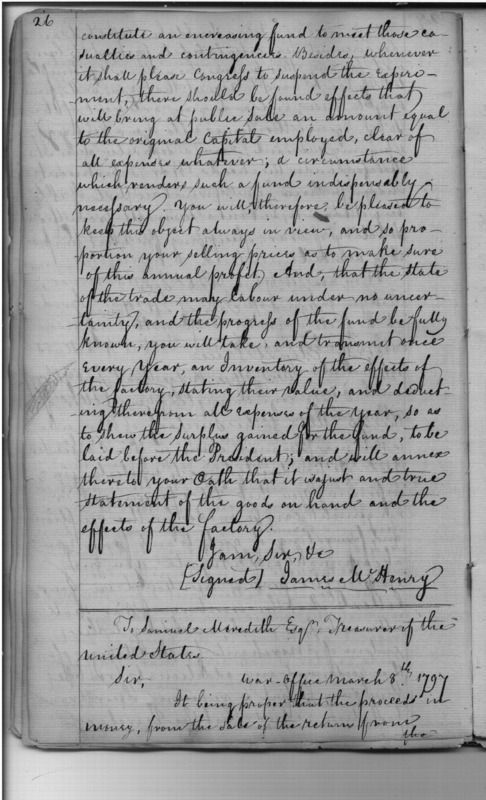 26
constitute an encreasing fund to meet those ca-
sualties and contingencies. Besides, whenever
it shall please Congress to suspend the experi-
ment, there should be found effects that
will bring at public sale an amount equal
to the original Capital employed, clear of
all expenses whatever; a circumstance
which renders such a fund indispensably
necessary. You will, therefore, be pleased to
keep this object always in view, and so pro-
portion your selling prices as to make sure
of this annual profit, And, that the state
of the trade may labour under no uncer-
tainty, and the progress of the fund be fully
known, you will take, and transmit once
every Year, an Inventory of the effects of
the factory, stating their value, and deduct-
ing therefrom all expenses of the year, so as
to shew the surplus gained for the fund, to be
laid before the President; and will annex
thereto your Oath that it is a just and true
statement of the goods on hand and the
effects of the factory.
I am, Sir, &c
[Signed] James McHenry
To Samuel Meredith Esqr. Treasurer of the
United States
Sir, War-Office March 8th 1797
It being proper that the proceeds in
money, from the sale of the return from
the